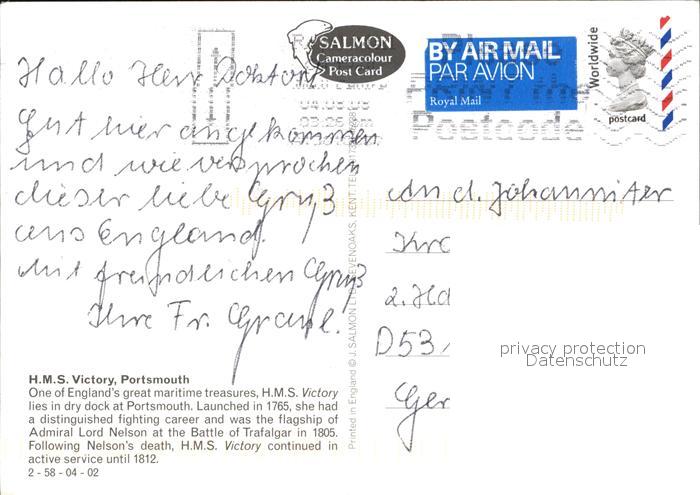 SALMON
Cameracolour
Post Card
BY AIR MAIL
PAR AVION
Royal Mail
Worldwide
postcard
Postcode
Hallo Herr Doktor
Gut hier angekommen
und wie versprochen
dieser liebe Gruß
aus England.
Mit freundlichen Gruß
Ihre Fr.
An d. Johanniter
2. Hd
D53
Ger
privacy protection
Datenschutz
H.M.S. Victory, Portsmouth
One of England's great maritime treasures, H.M.S. Victory
lies in dry dock at Portsmouth. Launched in 1765, she had
a distinguished fighting career and was the flagship of
Admiral Lord Nelson at the Battle of Trafalgar in 1805.
Following Nelson's death, H.M.S. Victory continued in
active service until 1812.
2 - 58 - 04 - 02
Printed in England © J. SALMON LTD., SEVENOAKS, KENT.